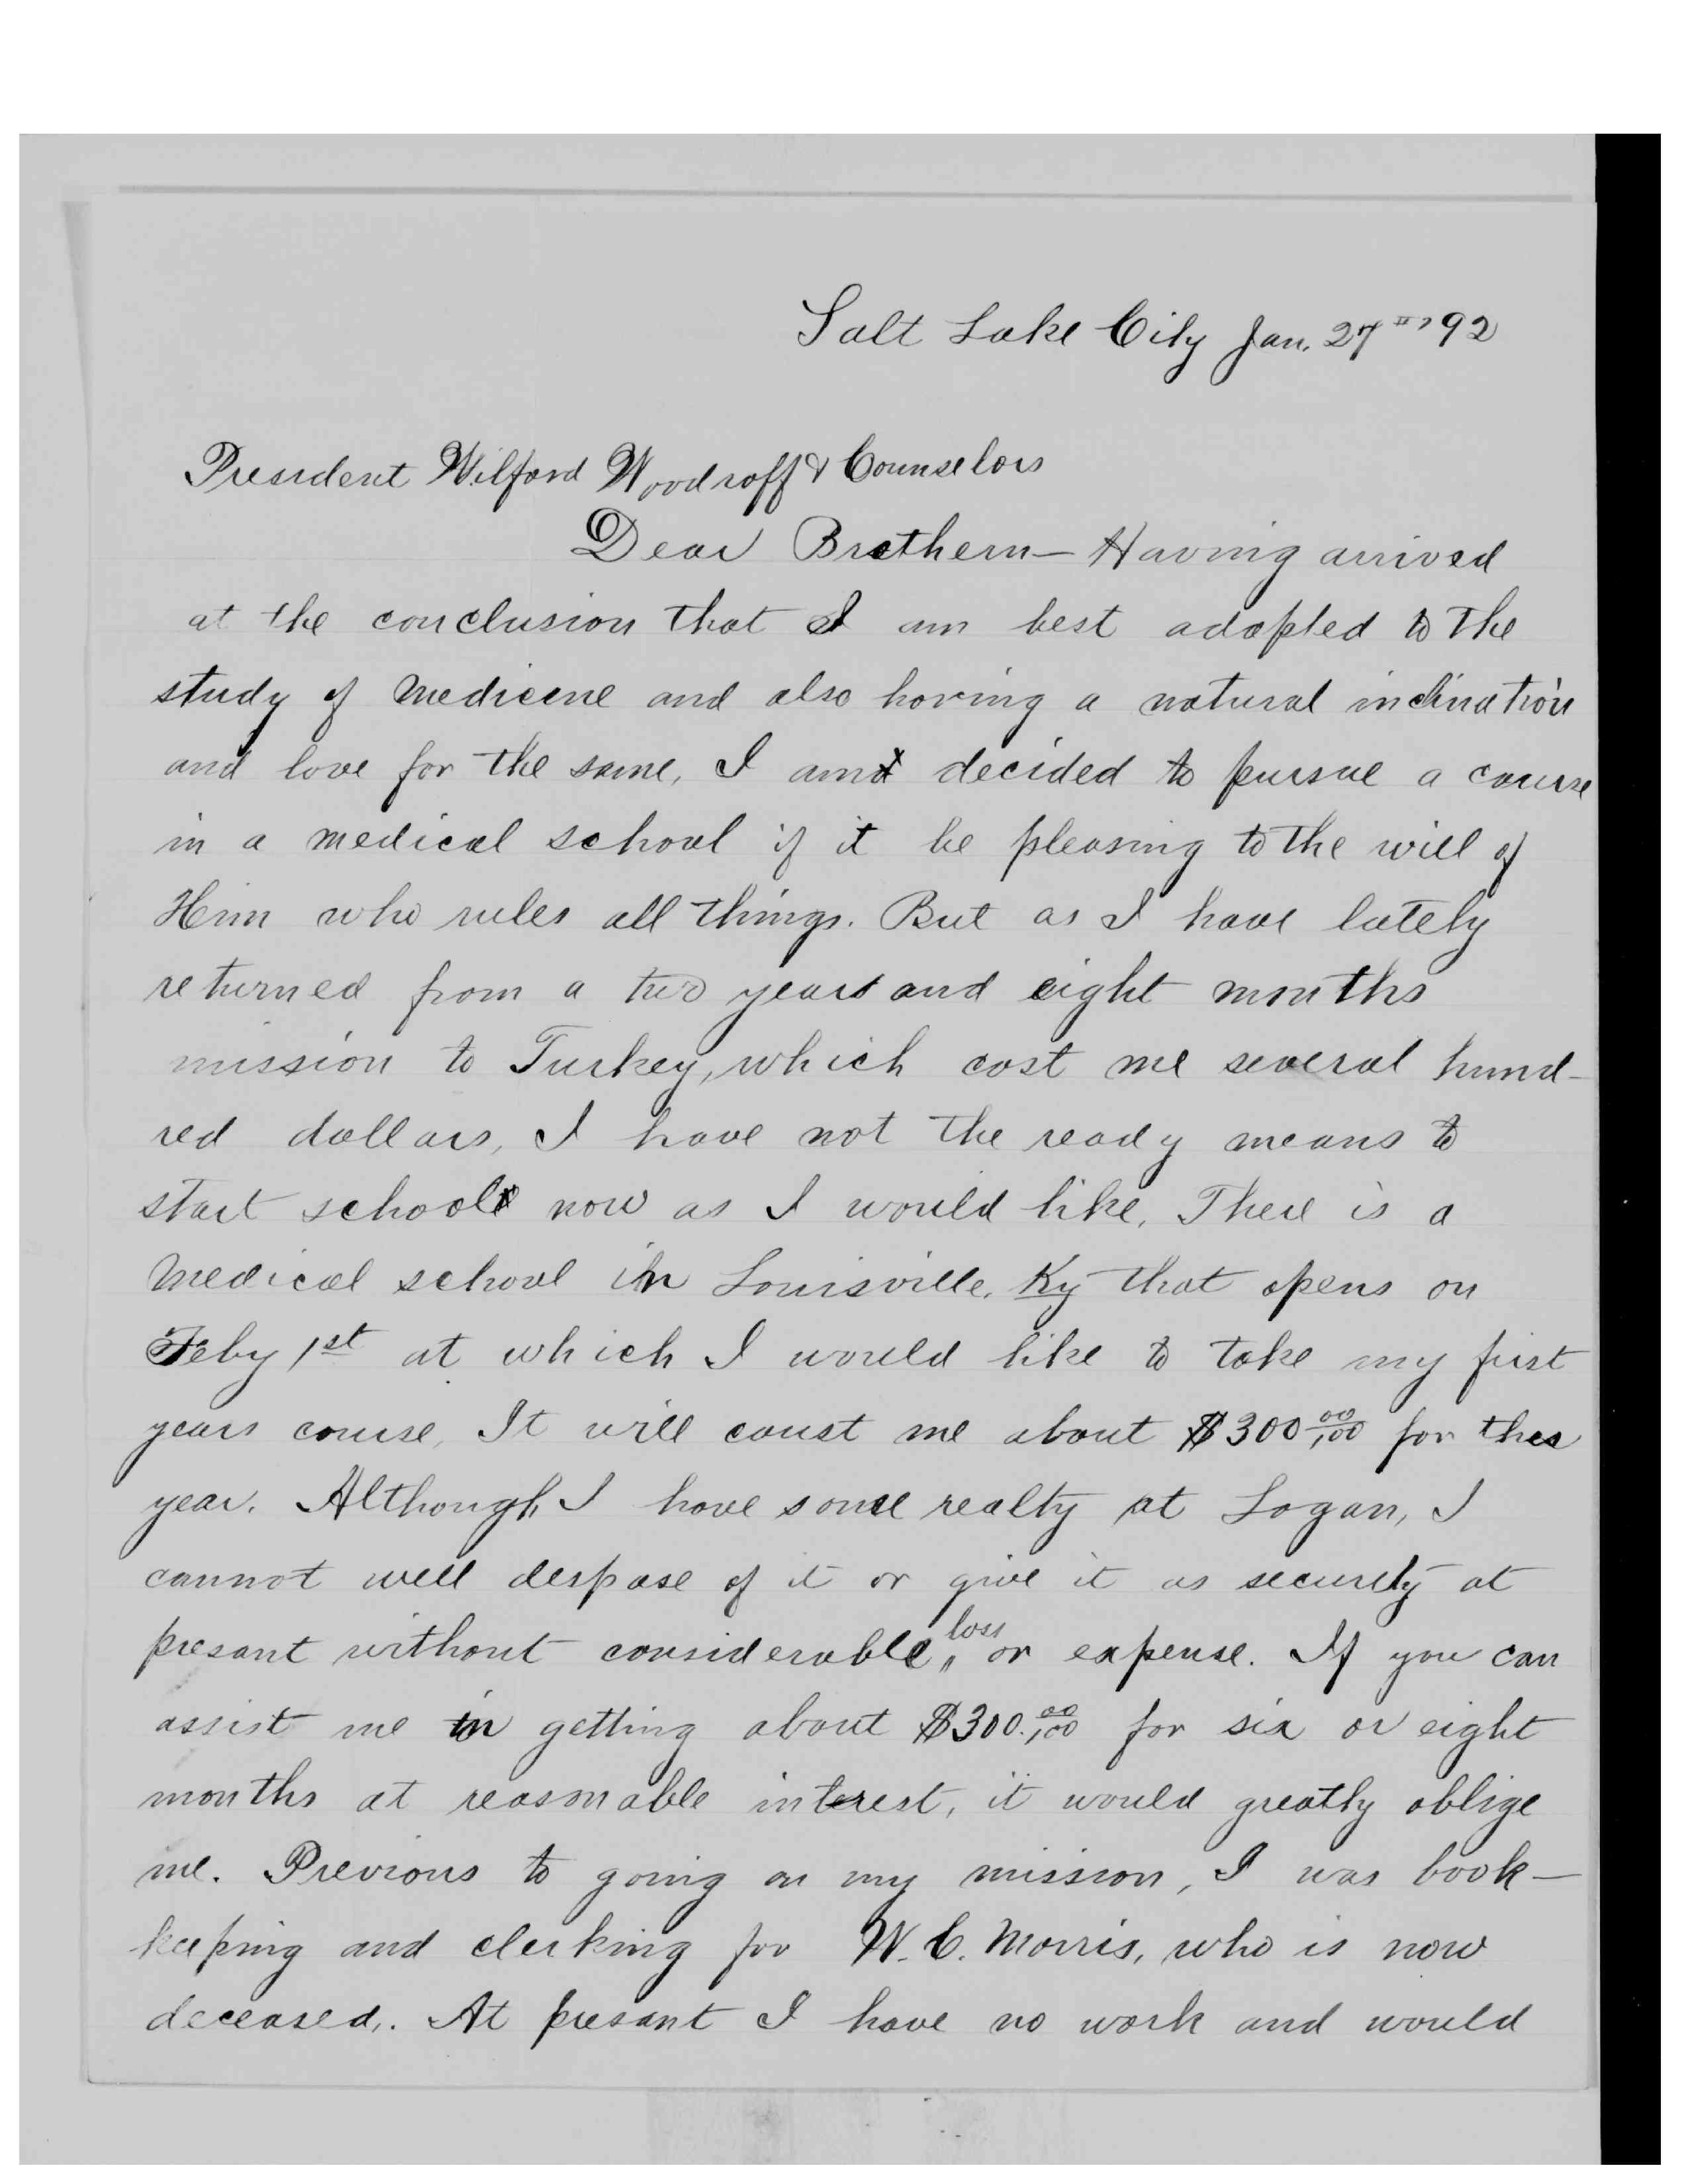 Salt Lake City Jan. 27th, 92
President Wilford Woodroff & Counselors
Dear Brethern— Having arrived
at the conclusion that I am best adapted to the
study of Medicene and also having a natural inclination
and love for the same, I am decided to pursue a course
in a medical school if it be pleasing to the will of
Him who rules all things. But as I have lately
returned from a two years and eight months
mission to Turkey, which cost me several hund-
red dollars, I have not the ready means to
start school now as I would like. There is a
Medical school in Louisville, Ky that opens on
Feby 1st at which I would like to take my first
years course. It will coust me about $300 00/100 for this
year. Although I have some realty at Logan, I
cannot well despose of it or give it as security at
presant without considerable loss or expense. If you can
assist me in getting about $300. 00/100 for six or eight
months at reasonable interest, it would greatly oblige
me. Previous to going on my mission, I was book-
keeping and clerking for W. C. Morris, who is now
deceased. At presant I have no work and would